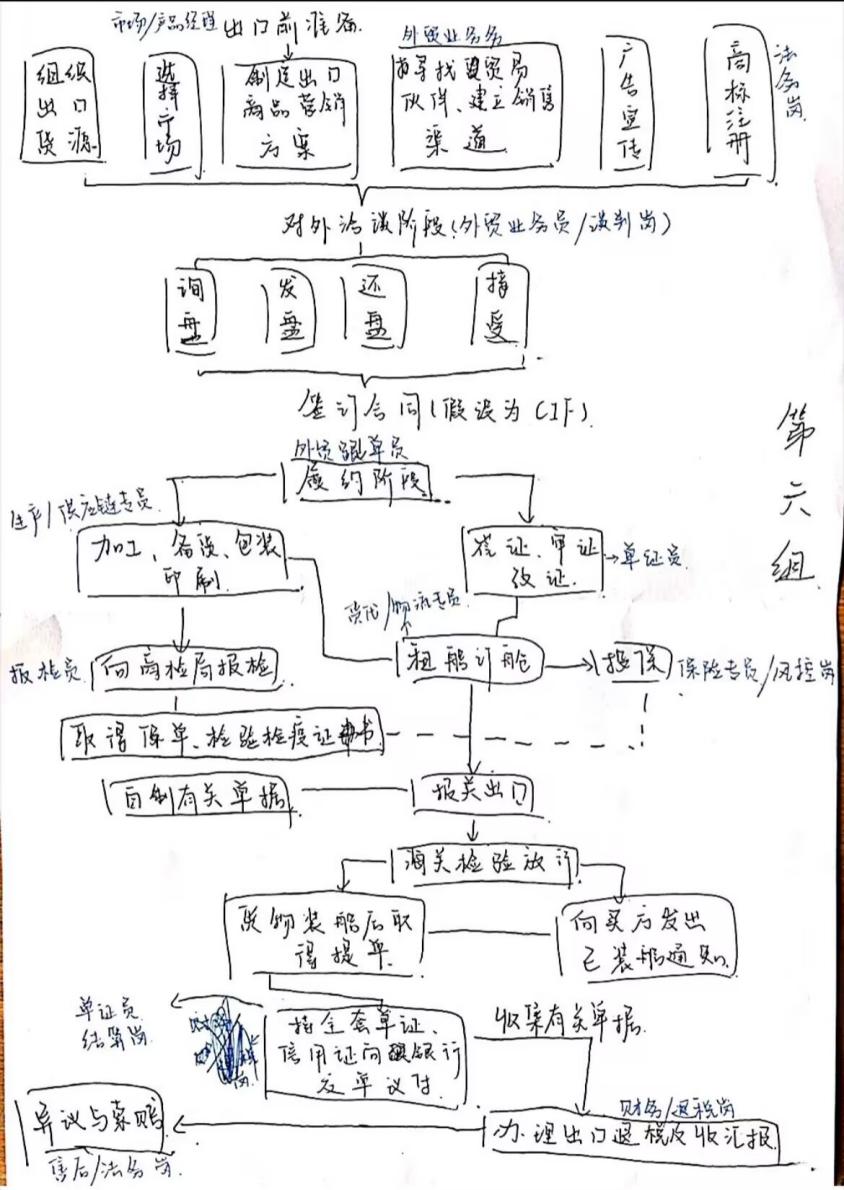 市场/产品经理 出口前准备
外贸业务
组织
出口
货源
选择市场
制定出口
商品营销
方案
寻找贸易
伙伴、建立销售
渠道
广告宣传
商标注册
法务岗
对外洽谈阶段(外贸业务员/谈判岗)
询盘
发盘
还盘
接受
签订合同(假设为CIF)
第六组
外贸跟单员
履约阶段
生产/供应链专员
加工、备货、包装
印刷
催证、审证
改证
单证员
货代/物流专员
报检员
向商检局报检
租船订舱
投保
保险专员/风控岗
取得保单、检验检疫证书
自制有关单据
报关出口
海关检验放行
货物装船后取
得提单
向买方发出
已装船通知
单证员
结算岗
持全套单证、
信用证向银行
交单议付
收集有关单据
财务/退税岗
异议与索赔
办理出口退税及收汇报
售后/法务岗